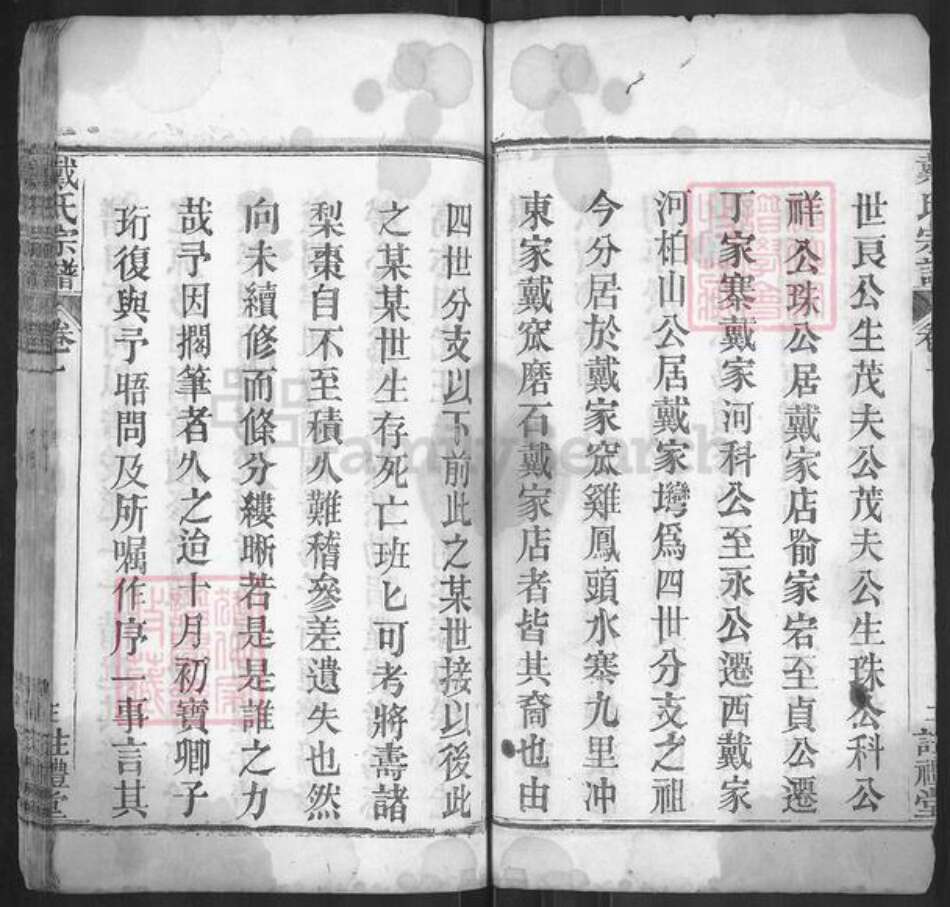 世良公生茂夫公茂夫公生珠公科公
祥公珠公居戴家店喻家宕至貞公遷
丁家寨戴家河科公至永公遷西戴家
河柏山公居戴家塆為四世分支之祖
今分居於戴家窊雞鳳頭水寨九里冲
東家戴窊磨石戴家店者皆其裔也由
四世分支以下前此之某世接以後此
之某某世生存死亡班匕可考將壽諸
梨棗自不至積久難稽參差遺失也然
向未續修而條分縷晰若是是誰之力
哉予因擱筆者久之迨十月初寶卿子
珩復與予晤問及所囑作序一事言其
戴氏宗譜
卷一
註禮堂
FamilySearch